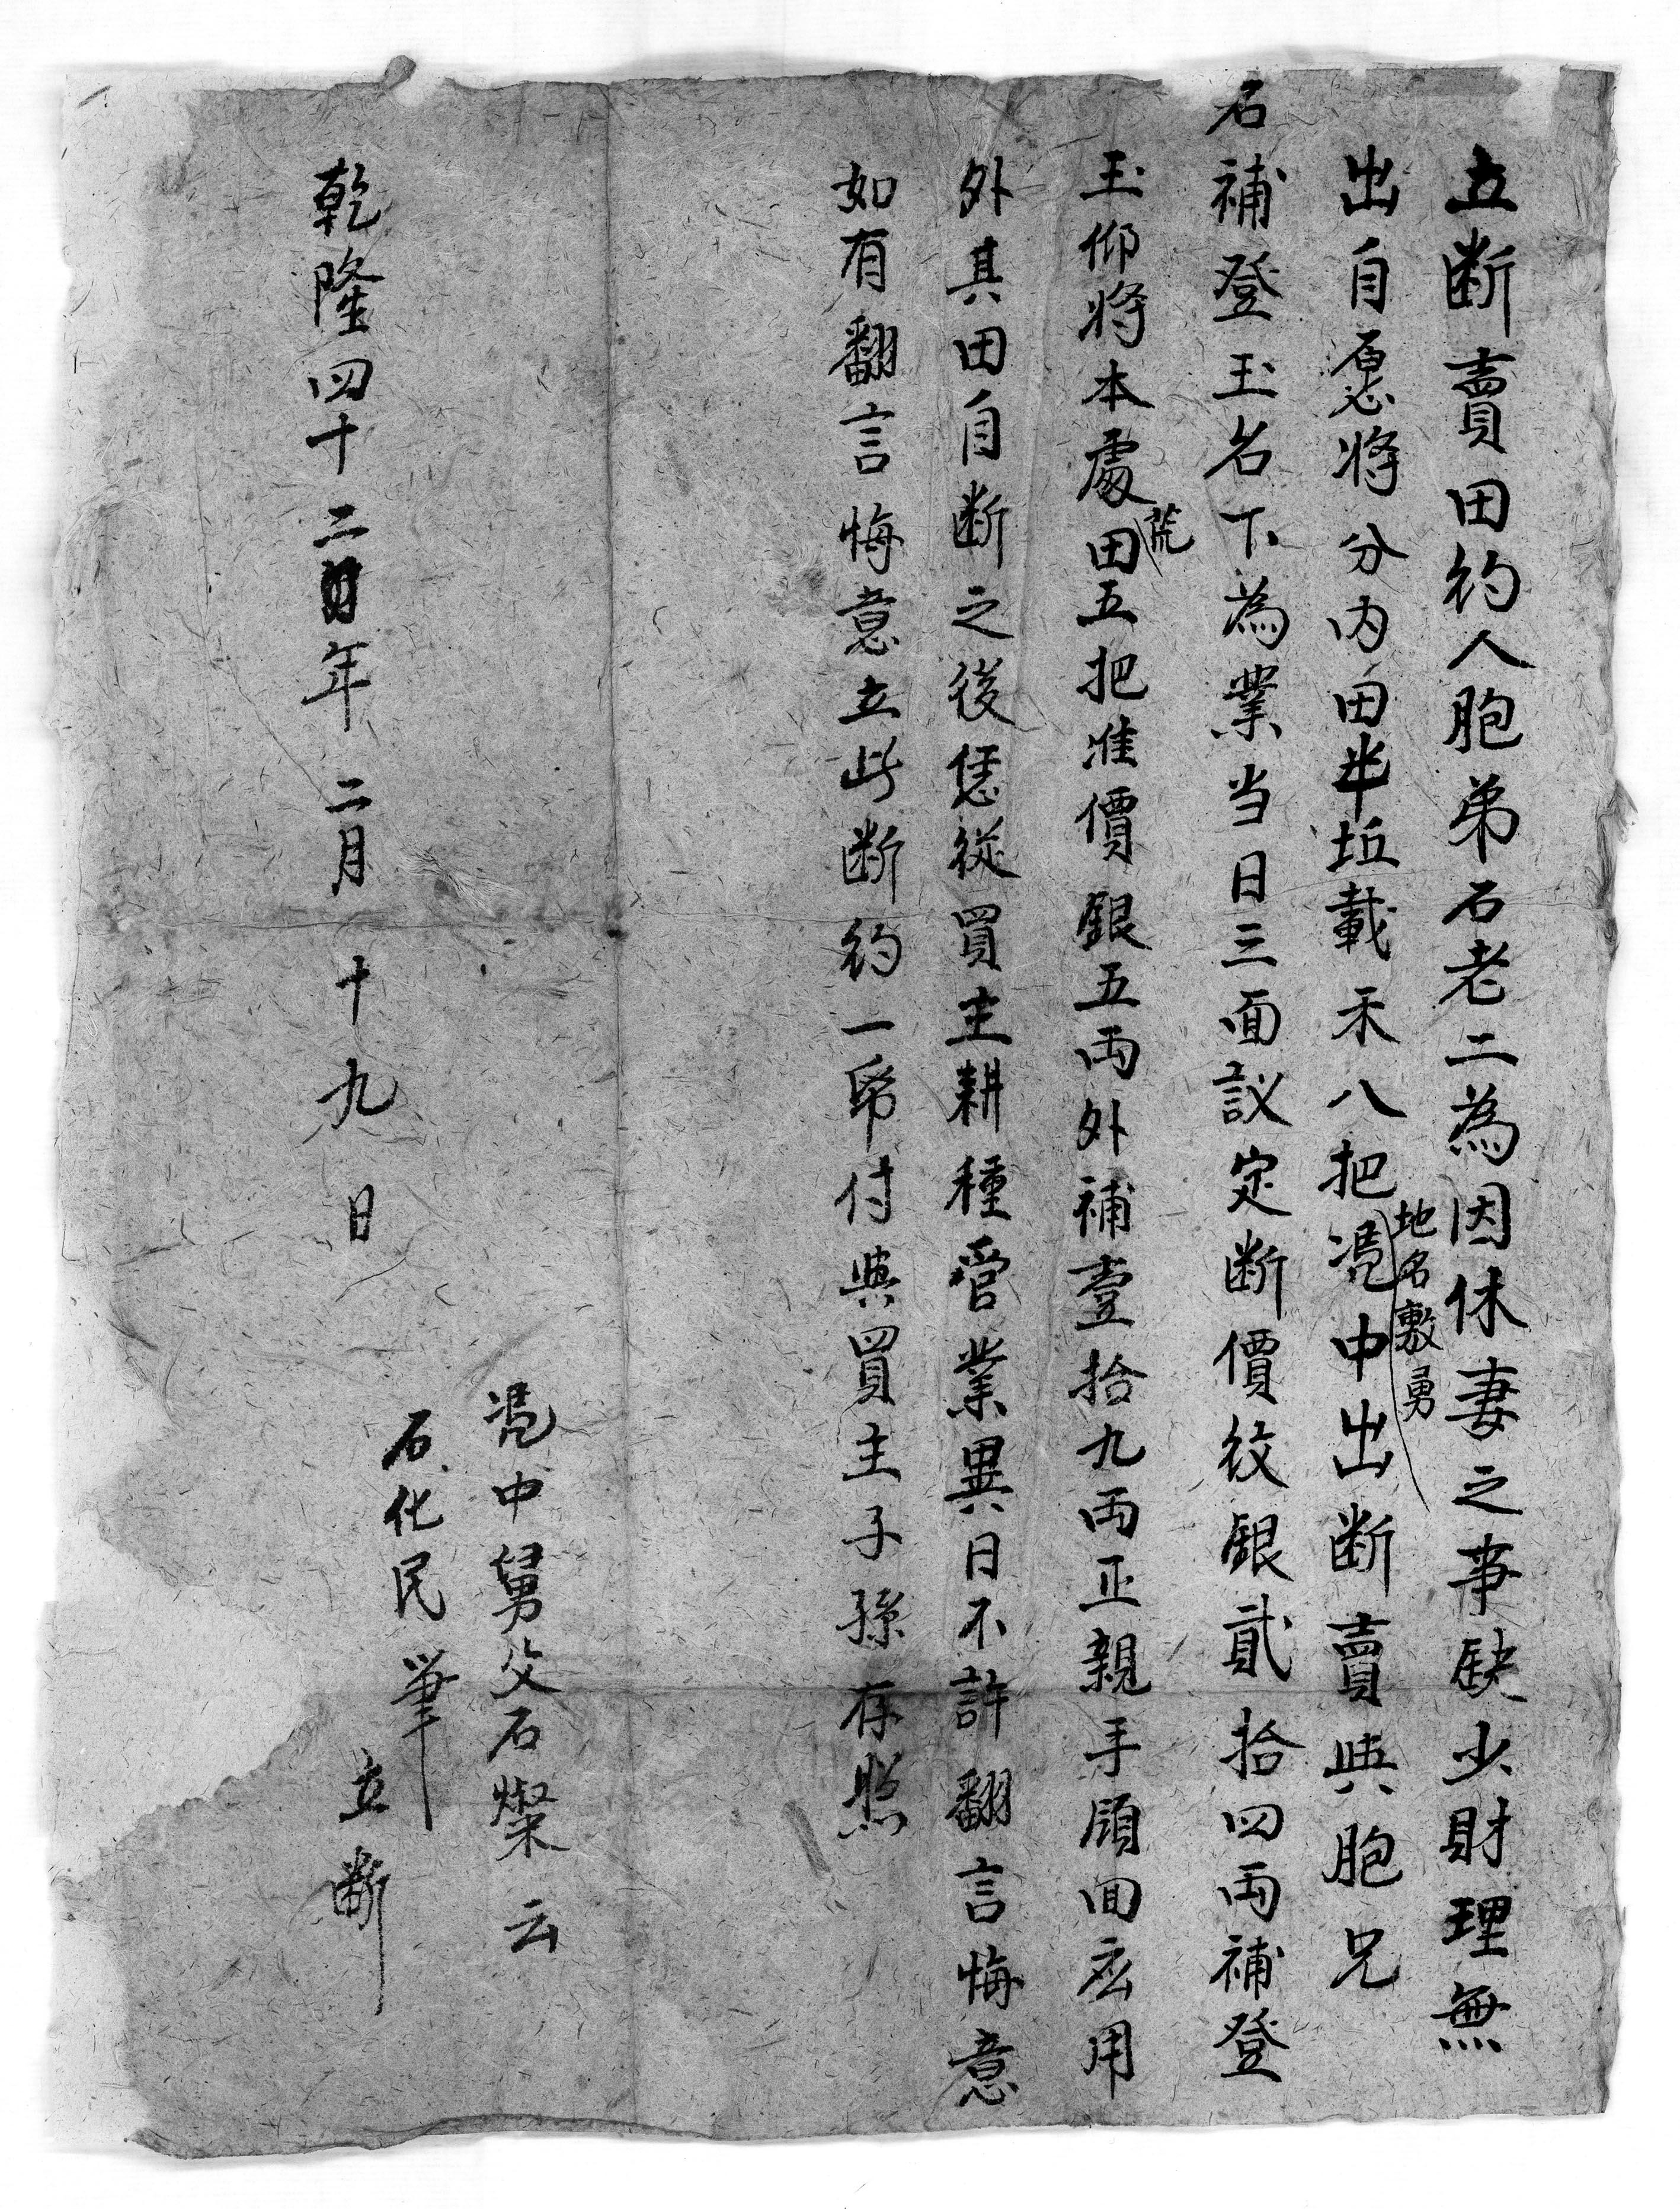 立断賣田約人胞弟石老二為因休妻之事缺少財理無
出自愿将分内田半坵載禾八把慿中出断賣與胞兄
地名敷勇
石補登玉名下為業当日三面議定断價紋銀貳拾四両補登
玉仰将本處田五把准價銀五両外補壹拾九両正親手領回応用
荒
外其田自断之後恁從買主耕種管業異日不許翻言悔意
如有翻言悔意立此断約一帋付與買主子孫存照
慿中舅父石燦云
石化民筆
乾隆四十二年二月十九日 立断